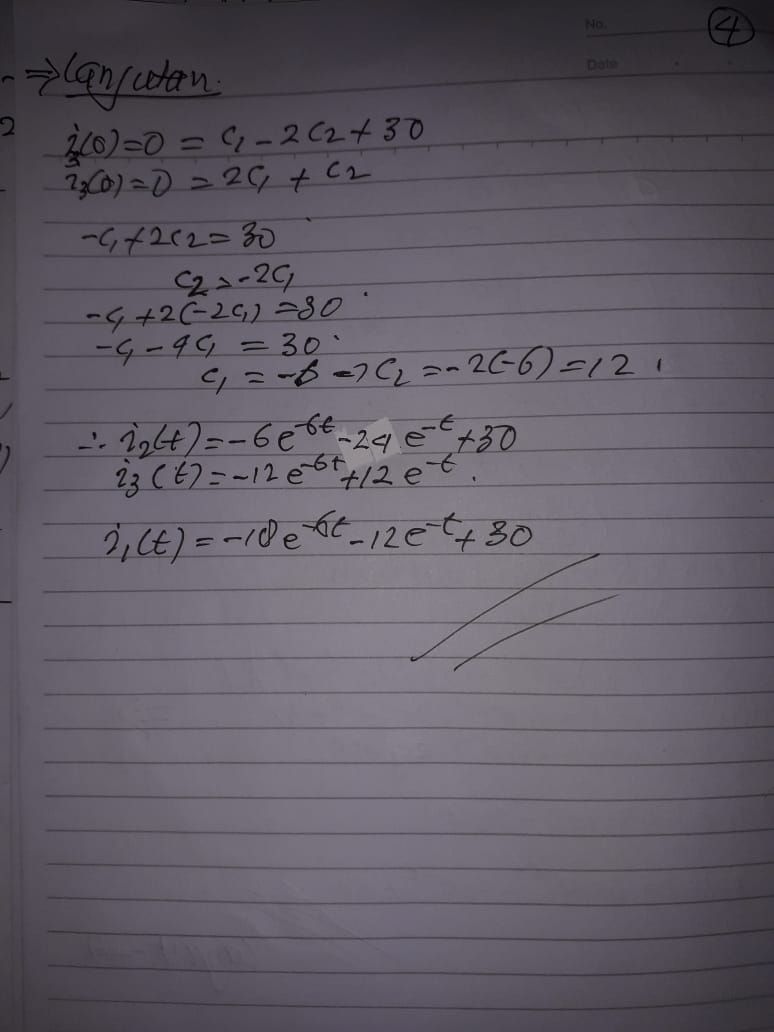 No.
4
Date
⇒ Lanjutan.
2
i₂(0)=0 = C₁ - 2C₂ + 30
i₃(0)=0 = 2C₁ + C₂
-C₁ + 2C₂ = 30
C₂ = -2C₁
-C₁ + 2(-2C₁) = 30
-C₁ - 4C₁ = 30
C₁ = -6 → C₂ = -2(-6) = 12
∴ i₂(t) = -6e^-6t - 24e^-t + 30
i₃(t) = -12e^-6t + 12e^-t.
i₁(t) = -18e^-6t - 12e^-t + 30